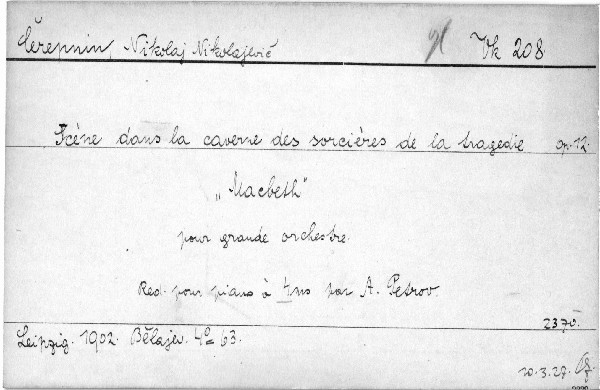 Čerepnin, Nikolaj Nikolajevič Vk 208
Scène dans la caverne des sorcières de la tragedie op. 12.
„Macbeth"
pour grande orchestre.
Red. pour piano à 4ms par A. Petrov.
2370.
Leipzig. 1902. Bělajev. 4º 63.
20.3.27.